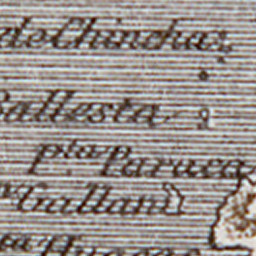 de Chincha
Ballesta
pta Paraca
Gallani